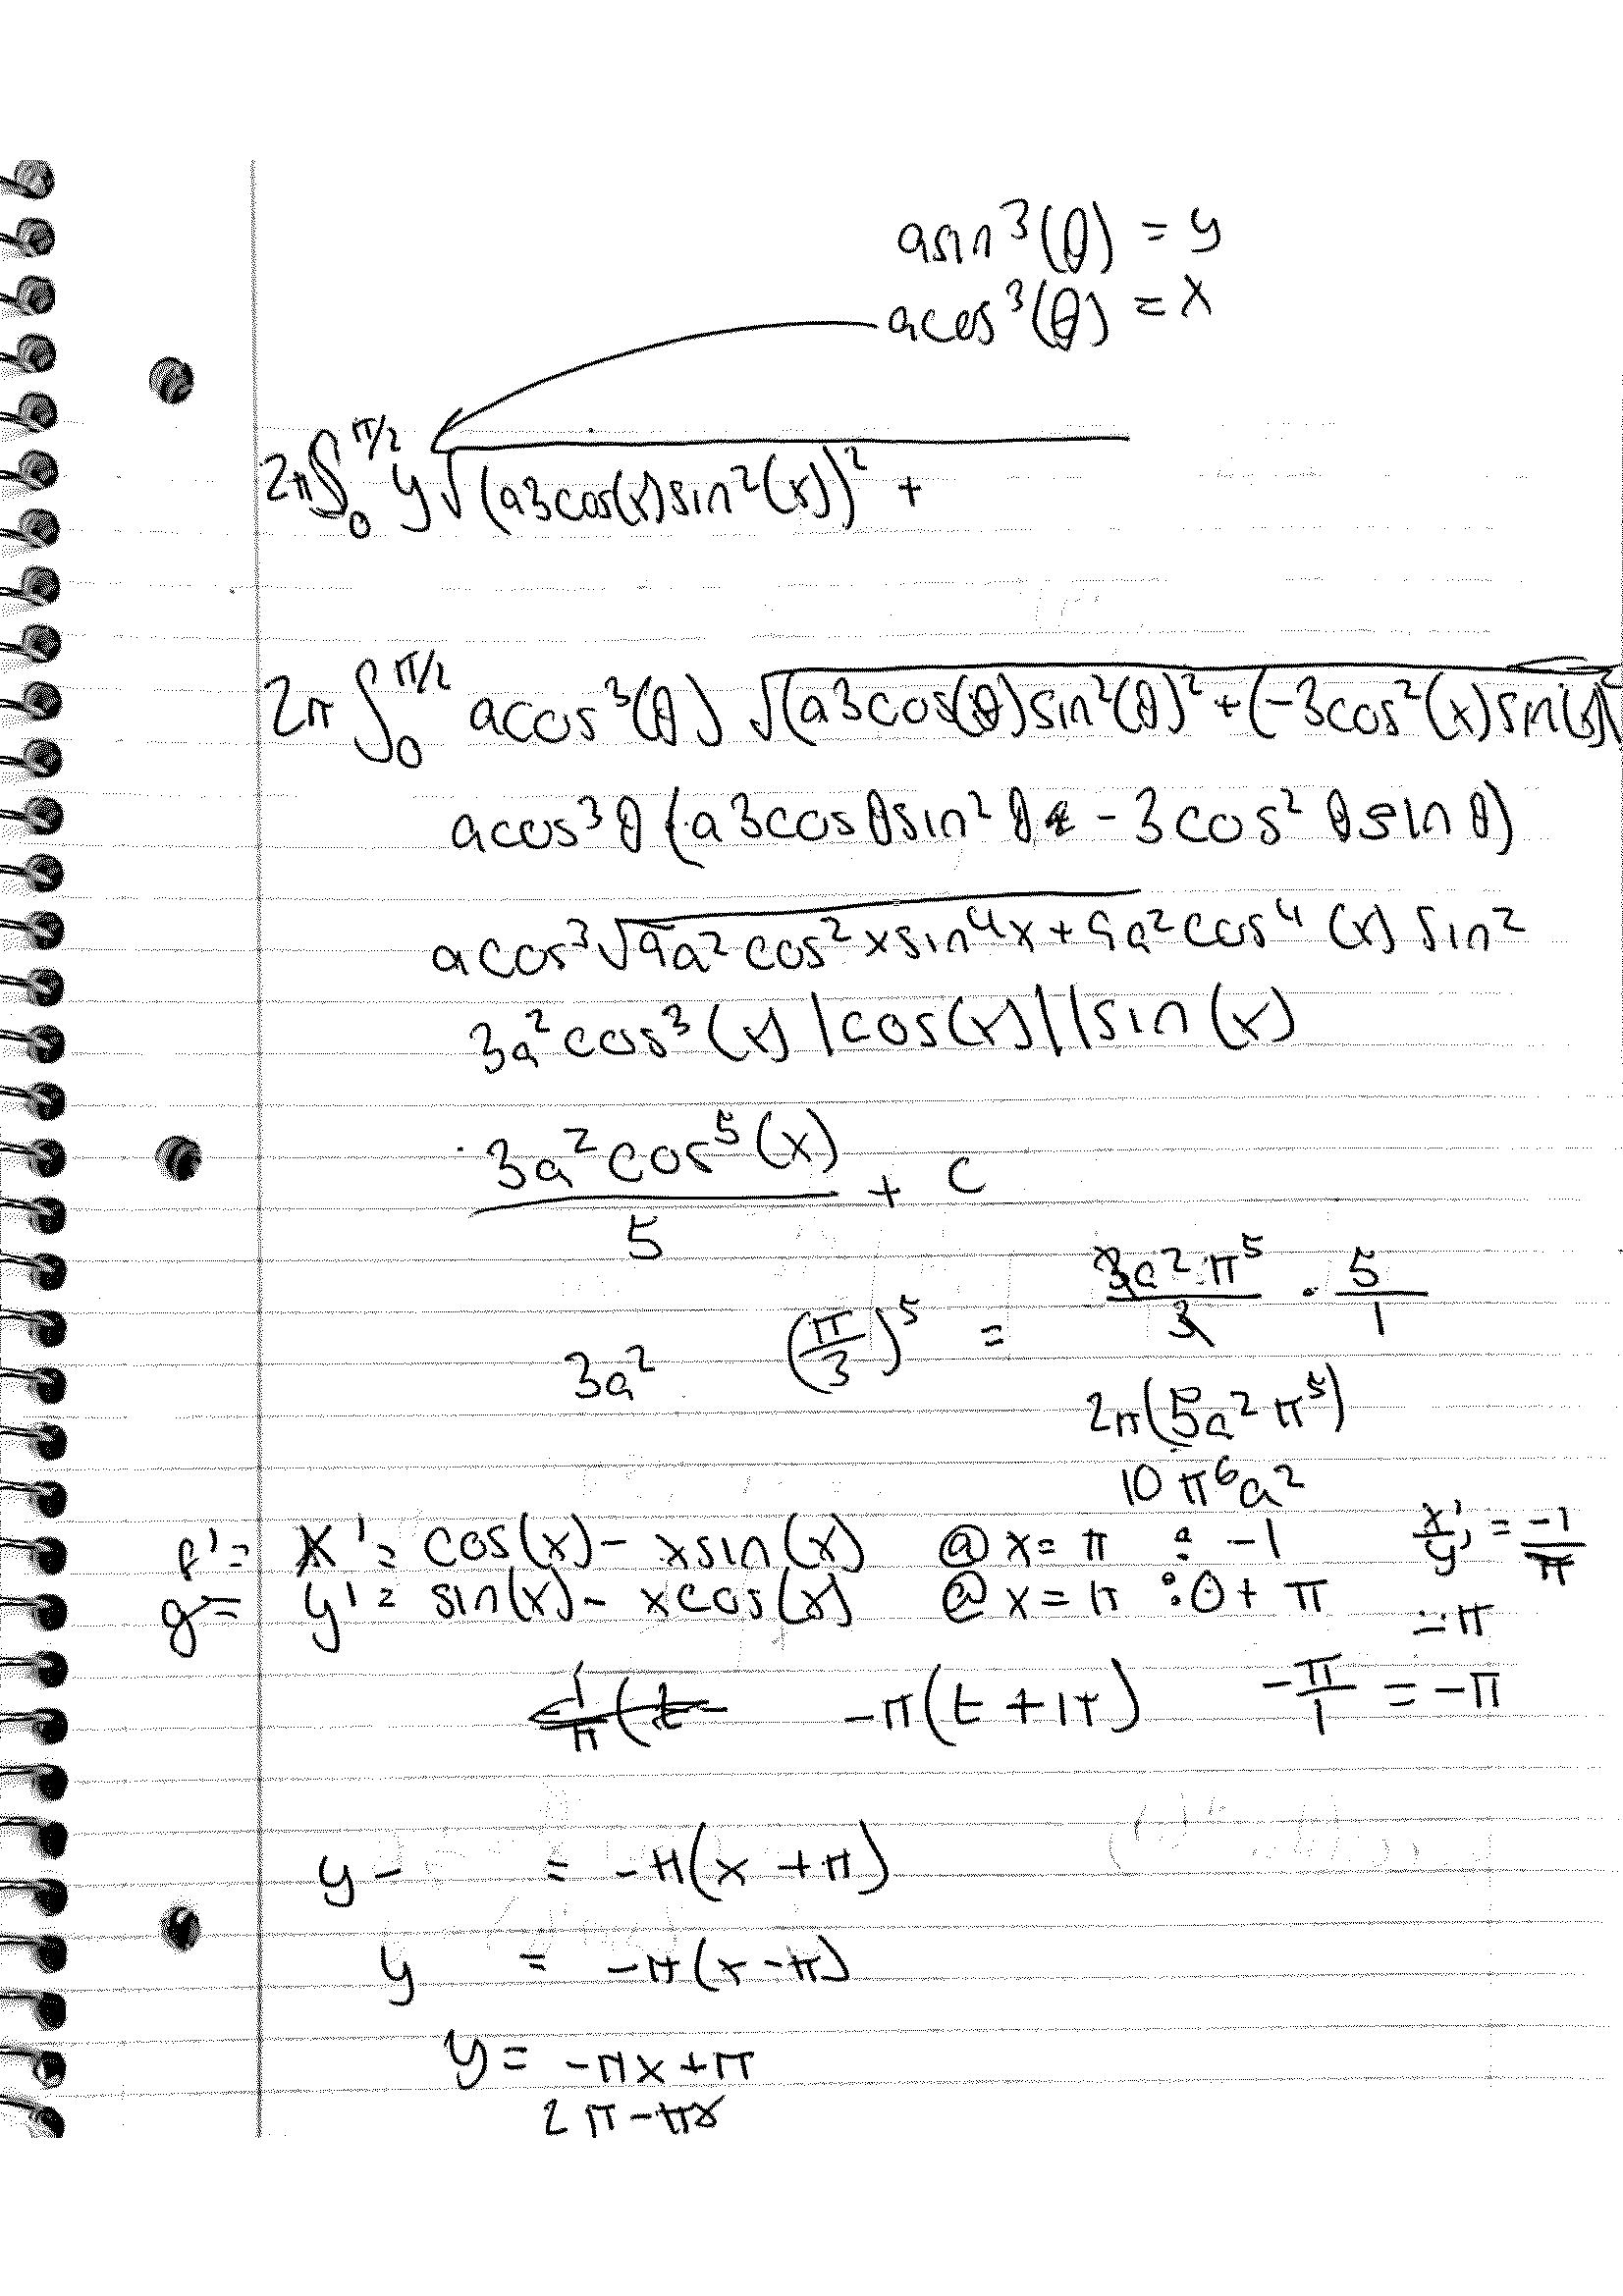 asin³(θ) = y
acos³(θ) = x
2π∫₀^π/2 y√(a3cos(x)sin²(x))² +
2π ∫₀^π/2 acos³(θ) √(a3cos(θ)sin²(θ))² + (-3cos²(x)sin(x))²
acos³θ (a3cosθsin²θ - 3cos²θsinθ)
acos³√9a²cos²xsin⁴x + 9a²cos⁴(x) sin²
3a²cos³(x) |cos(x)||sin(x)
3a²cos⁵(x)/5 + C
3a² (π/3)⁵ = 3a²π⁵/3 · 5/1
2π(5a²π⁵)
10π⁶a²
f' = x' = cos(x) - xsin(x) @ x = π : -1 x'/y' = -1/π
g = y' = sin(x) - xcos(x) @ x = π : 0 + π = -π
1/π(t - -π(t + π) -π/1 = -π
y - = -π(x + π)
y = -π(x - π)
y = -πx + π
2π - πx